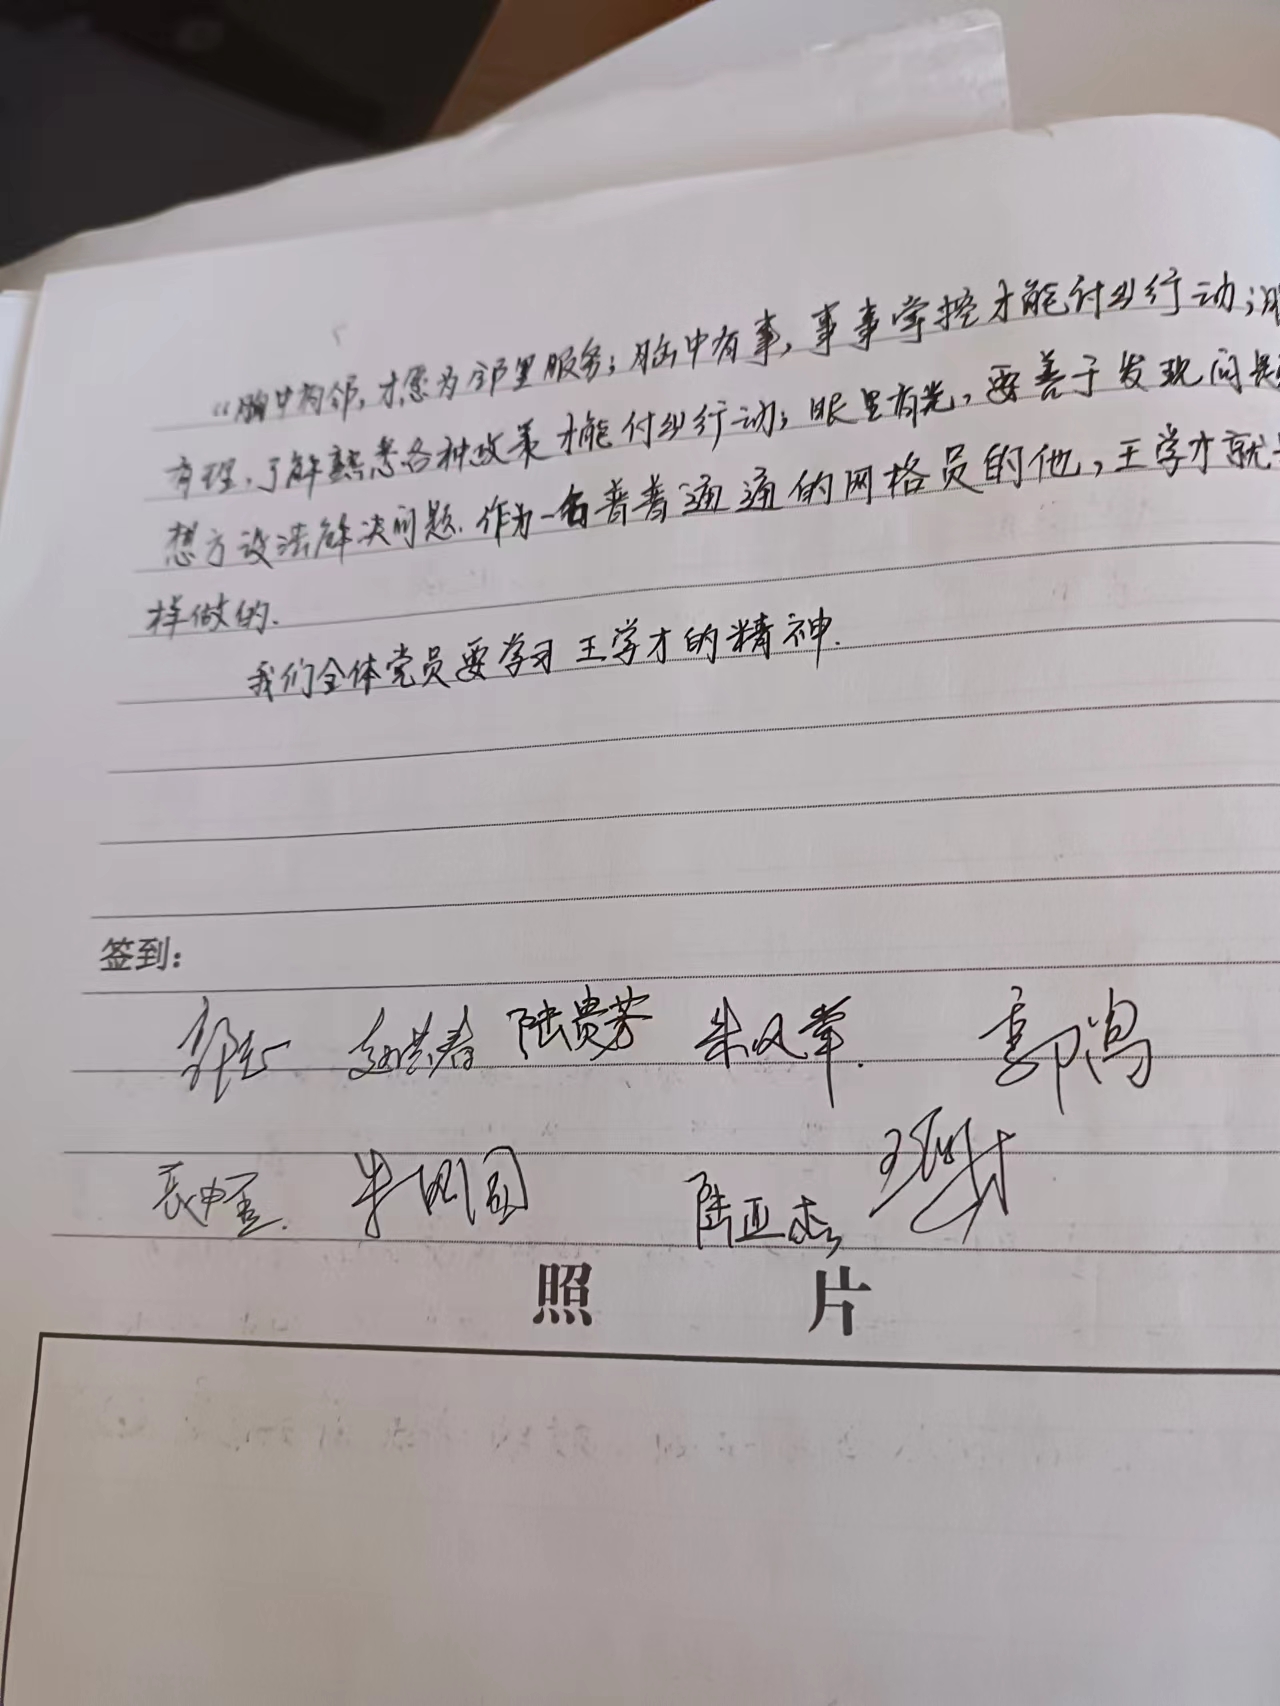 “胸中有邻,才愿为邻里服务;脑中有事,事事掌控才能付出行动;
有理,了解熟悉各种政策才能付出行动;眼里有光,要善于发现问题
想方设法解决问题.作为一名普普通通的网格员的他,王学才就
样做的.
我们全体党员要学习王学才的精神.
签到:
赵洪春 陆贵芳 朱凤举.
陆亚杰
照 片